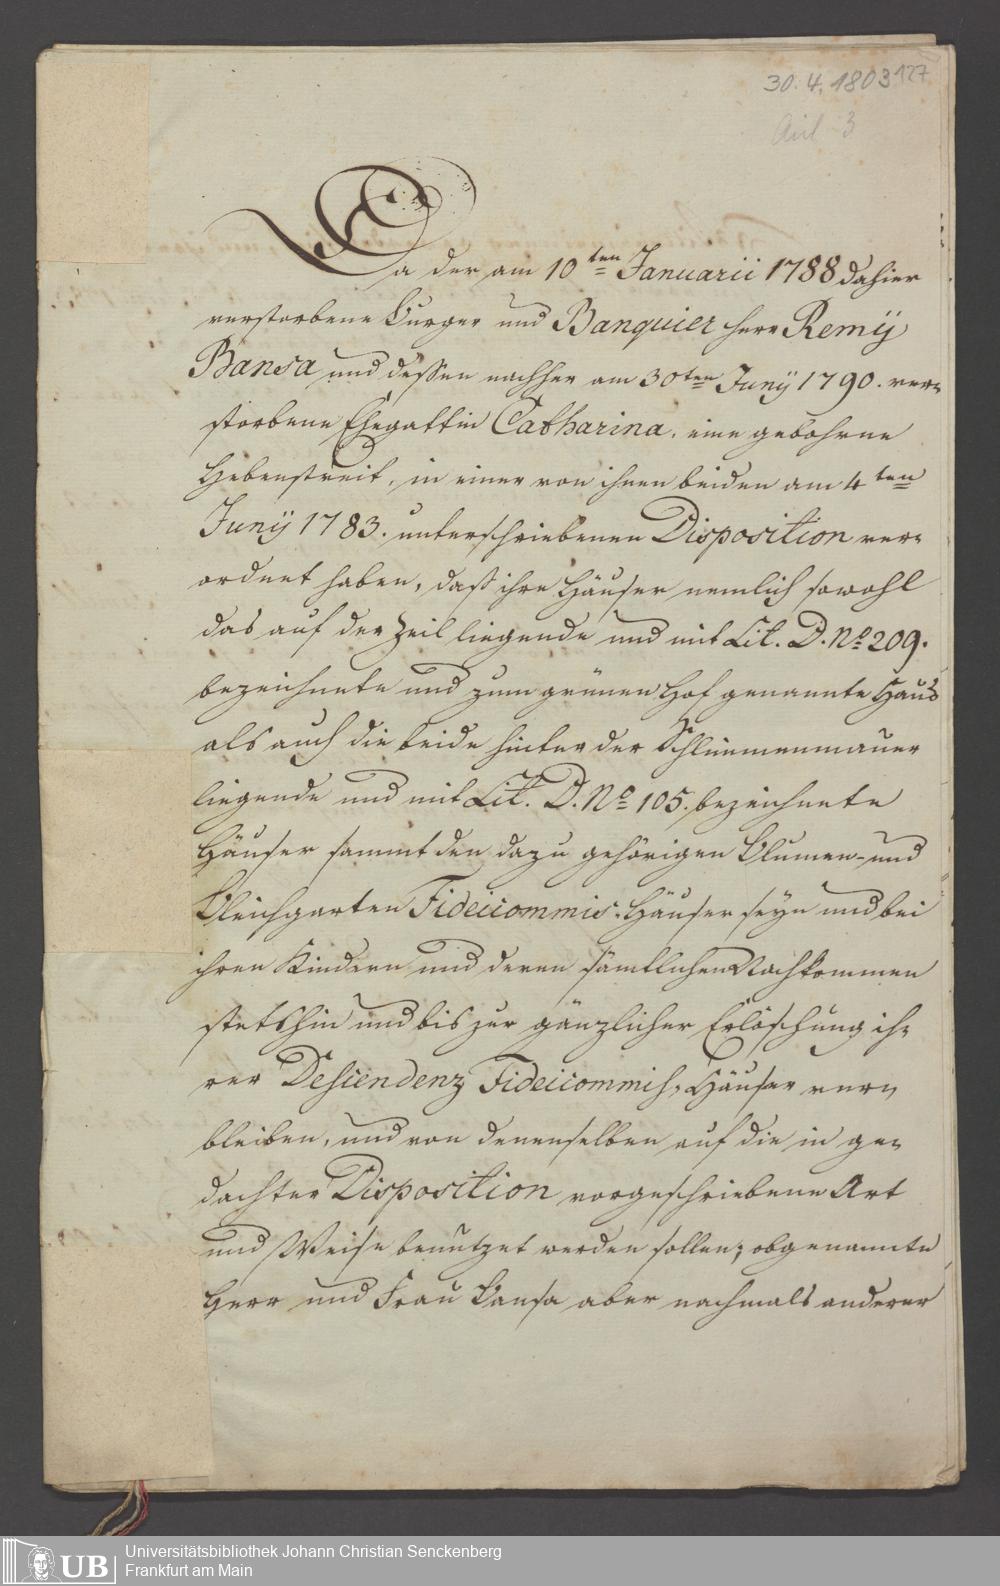 30. 4. 1803 127
3
Da der am 10ten Januarii 1788 dahier
verstorbene Burger und Banquier Herr Remÿ
Bansa und dessen nachher am 30ten Junÿ 1790. ver-
storbene Ehegattin Catharina, eine gebohrne
Hebenstreit, in einer von ihnen beiden am 4ten
Junÿ 1783. unterschriebenen Disposition ver-
ordnet haben, daß ihre Häuser nemlich sowohl
das auf der Zeil liegende und mit Lit. D. No 209.
bezeichnete und zum grünen Hof genannte Haus
als auch die beide hinter der Schlimmenmauer
liegende und mit Lit. D. No 105. bezeichnete
Häuser sammt den dazu gehörigen Blumen- und
Bleichgarten Fideicommis-Häuser seyn und bei
ihren Kindern und deren sämtlichen Nachkommen
stetshin und bis zur gänzlicher Erlöschung ih-
rer Descendenz Fideicommiß-Häuser ver-
bleiben, und von denenselben auf die in ge-
dachter Disposition vorgeschriebene Art
und Weise benutzet werden sollen; obgenannte
Herr und Frau Bansa aber nachmals anderer
UB
Universitätsbibliothek Johann Christian Senckenberg
Frankfurt am Main